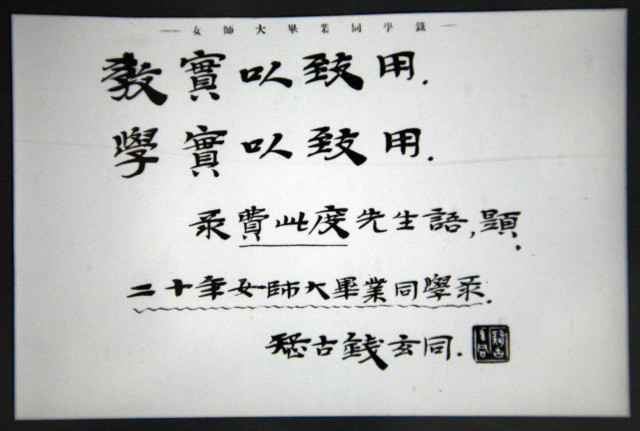 — 女師大畢業同学錄 —
教實以致用.
學實以致用.
彔費此度先生語,題.
二十年女師大畢業同學彔.
疑古錢玄同.